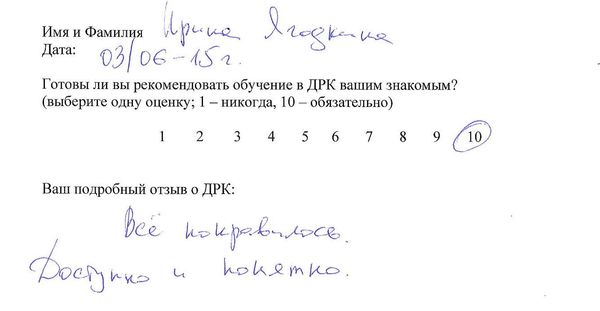 Имя и Фамилия Ирина Ягодкина
Дата: 03/06-15г.
Готовы ли вы рекомендовать обучение в ДРК вашим знакомым?
(выберите одну оценку; 1 – никогда, 10 – обязательно)
1 2 3 4 5 6 7 8 9 10
Ваш подробный отзыв о ДРК:
Всё понравилось.
Доступно и понятно.